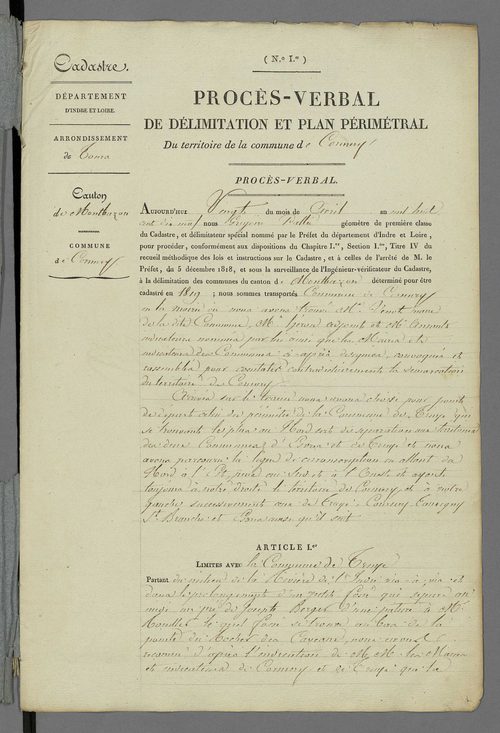 Cadastre.
DÉPARTEMENT
D'INDRE ET LOIRE.
ARRONDISSEMENT
de Tours
Canton
de Montbazon
COMMUNE
de Cormery
( N.o I.er )
PROCÈS-VERBAL
DE DÉLIMITATION ET PLAN PÉRIMÉTRAL
Du territoire de la commune de Cormery
PROCÈS-VERBAL.
AUJOURD'HUI Vingt du mois de Avril an mil huit
cent dix neuf nous géomètre de première classe
du Cadastre, et délimitateur spécial nommé par le Préfet du département d'Indre et Loire,
pour procéder, conformément aux dispositions du Chapitre I.er, Section I.re, Titre IV du
recueil méthodique des lois et instructions sur le Cadastre, et à celles de l'arrêté de M. le
Préfet, du 5 décembre 1818, et sous la surveillance de l'Ingénieur-vérificateur du Cadastre,
à la délimitation des communes du canton de Montbazon déterminé pour être
cadastré en 1819 ; nous sommes transportés Commune de Cormery
en la mairie où nous avons trouvé Mr. maire
de la dite Commune, Mr. adjoint et Mr.
indicateurs nommés par les
indicateurs des Communes ci après désignées, convoqués et
rassemblés pour constater contradictoirement la démarcation
du territoire de Cormery.
sur le terrain nous avons choisi pour point
de départ celui du périmètre de la Commune de Truyes qui
se trouvant le plus au Nord sert de séparation aux territoires
des deux Communes d' et de Truyes et nous
avons parcouru la ligne de circonscription en allant du
Nord à l'Est, puis au Sud et à l'Ouest et ayant
toujours à notre droite le territoire de Cormery et à notre
gauche successivement ceux de Truyes, Courçay, Tauxigny
St. Branchs et ainsi qu'il suit
ARTICLE I.er
LIMITES AVEC la Commune de Truyes
Partant du milieu de la Rivière de l'Indre vis à vis et
dans le prolongement d'un petit fossé qui sépare un
pré de Joseph Berger d'une à Mr.
lequel fossé se trouve
du Rocher des nous avons
reconnu d'après l'indication de MM. les Maires
et indicateurs de Cormery et de Truyes que la